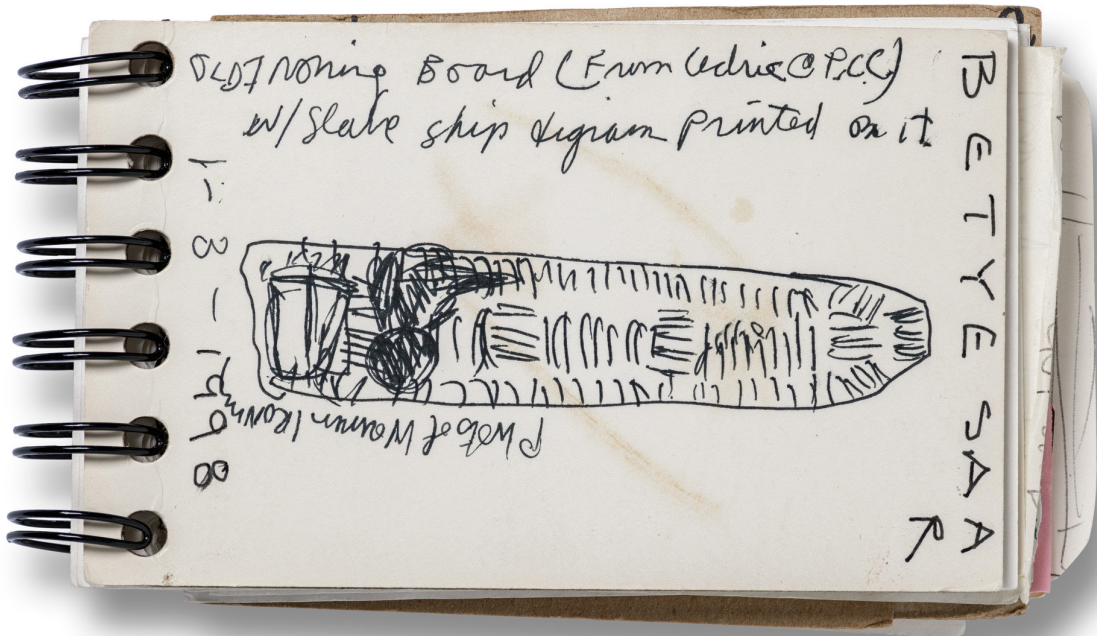 OLD IRONING BOARD (From Cedric @ P.C.C.)
w/ Slave ship digram printed on it
1-3-1998
Photo of Woman Ironing
BETYE SAAR